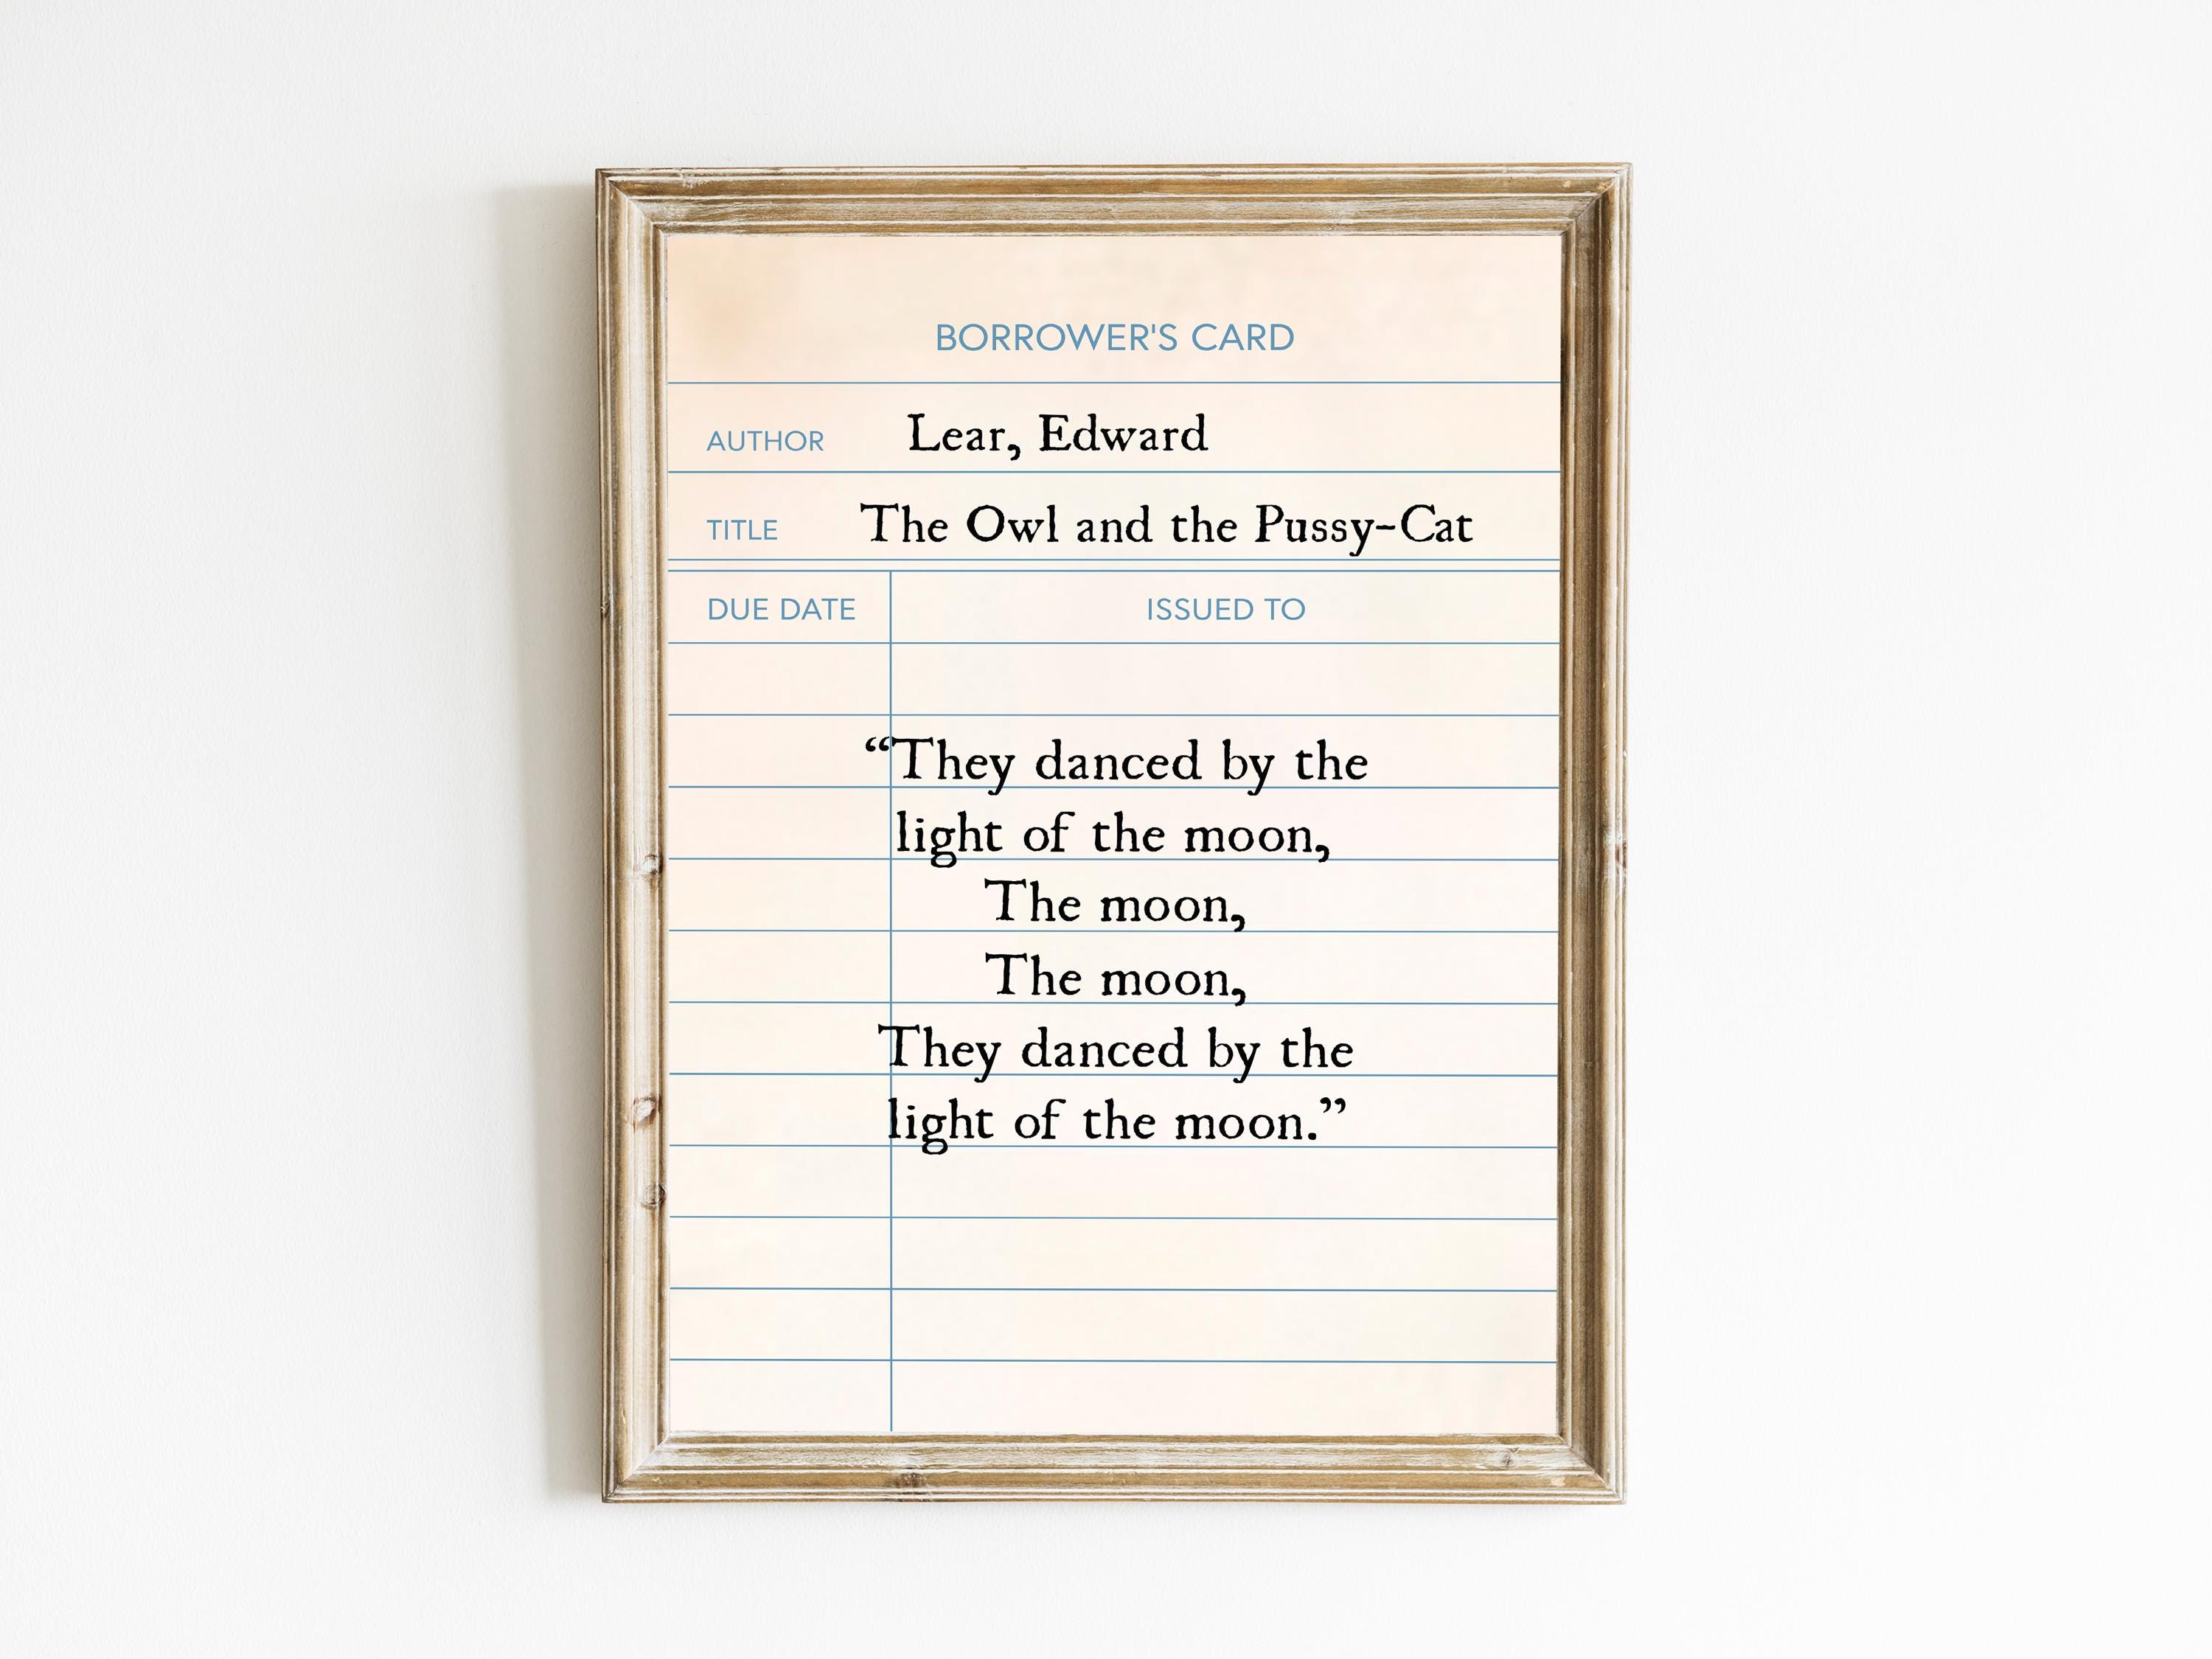 BORROWER'S CARD
AUTHOR Lear, Edward
TITLE The Owl and the Pussy-Cat
DUE DATE ISSUED TO
“They danced by the
light of the moon,
The moon,
The moon,
They danced by the
light of the moon.”